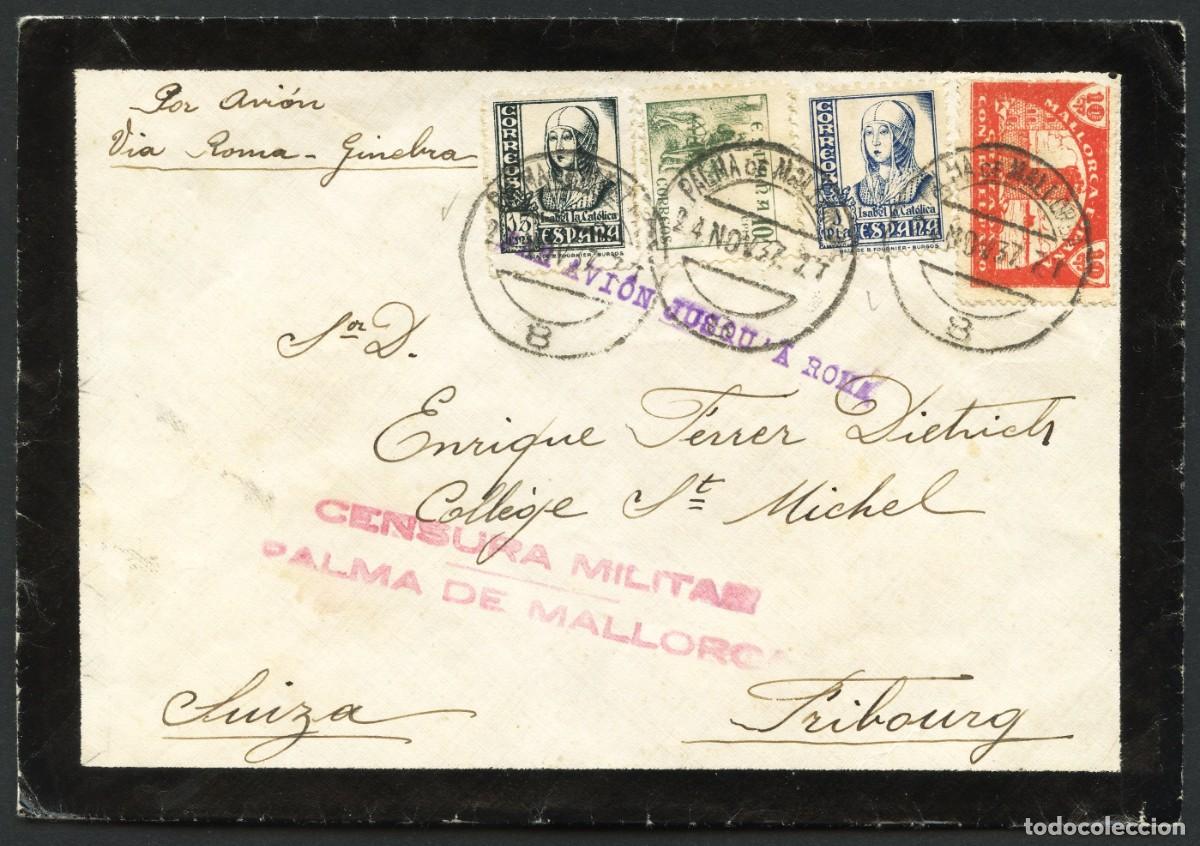 Por Avión
Via Roma - Ginebra
CORREOS
15 Cts
Isabel la Católica
ESPAÑA
HIJA DE B. FOURNIER - BURGOS
CORREOS
ESPAÑA
CORREOS
1 Pta
Isabel la Católica
ESPAÑA
HIJA DE B. FOURNIER - BURGOS
MALLORCA
CONTRA
10
10
PALMA DE MALL
24 NOV 37. 21
8
MALLOR
NOV 37. 21
8
AVIÓN JUSQU'A ROMA
Sor D.
Enrique Ferrer Dietrich
Collège St Michel
CENSURA MILITAR
PALMA DE MALLORCA
Suiza
Fribourg
todocoleccion